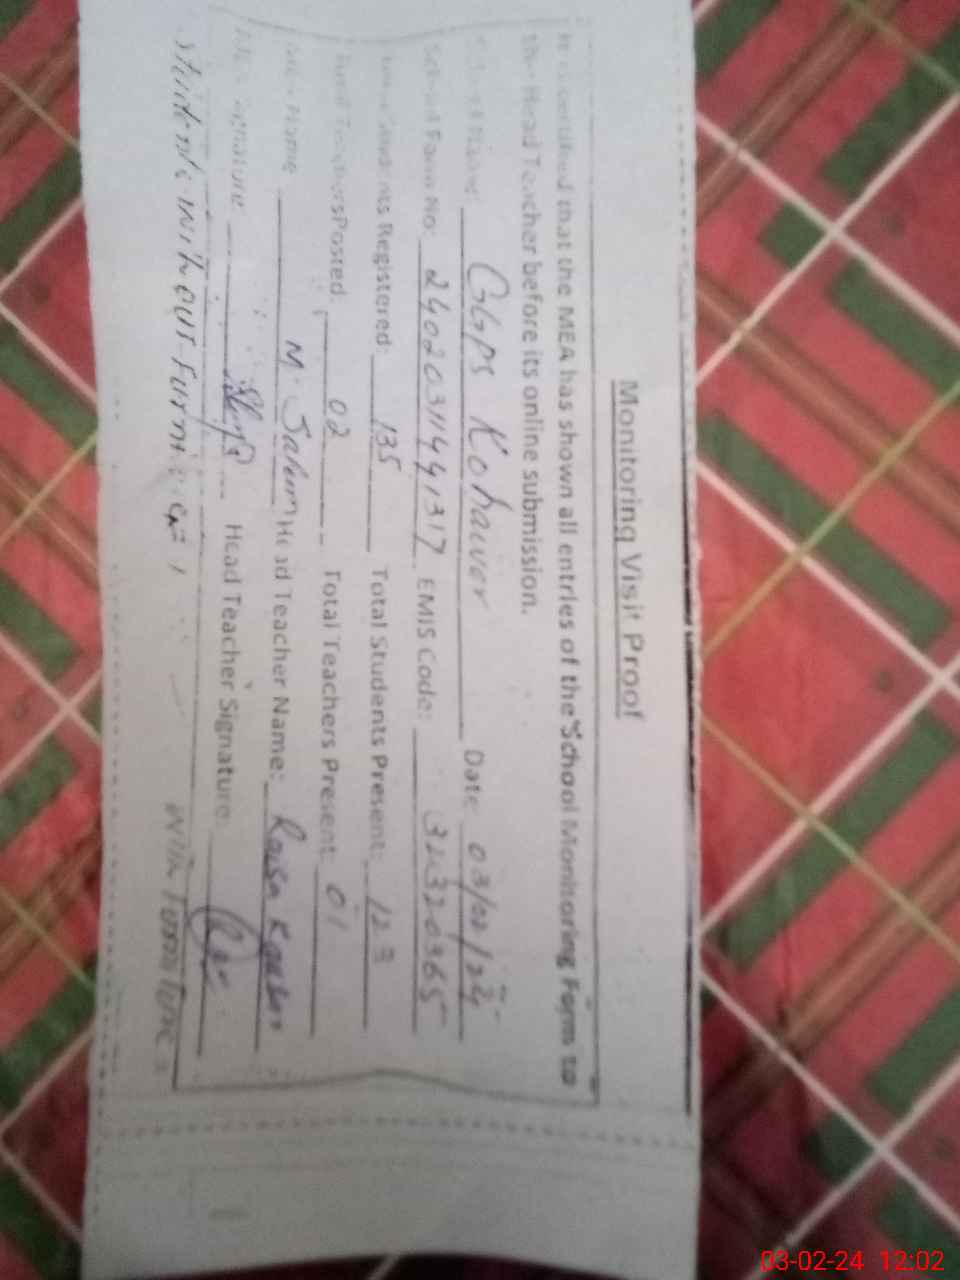 Monitoring Visit Proof
It is certified that the MEA has shown all entries of the School Monitoring Form to
the Head Teacher before its online submission.
School Name: GGPS Kohawer Date 03/02/24
School Form No: 2402031144 1317 EMIS Code: 32320365
Students Registered: 135 Total Students Present: 123
Total Teachers Posted: 02 Total Teachers Present: 01
MEA Name M. Salim Head Teacher Name: Raisa Kausar
MEA Signature Head Teacher Signature:
Students without Furni With Furniture =
03-02-24 12:02